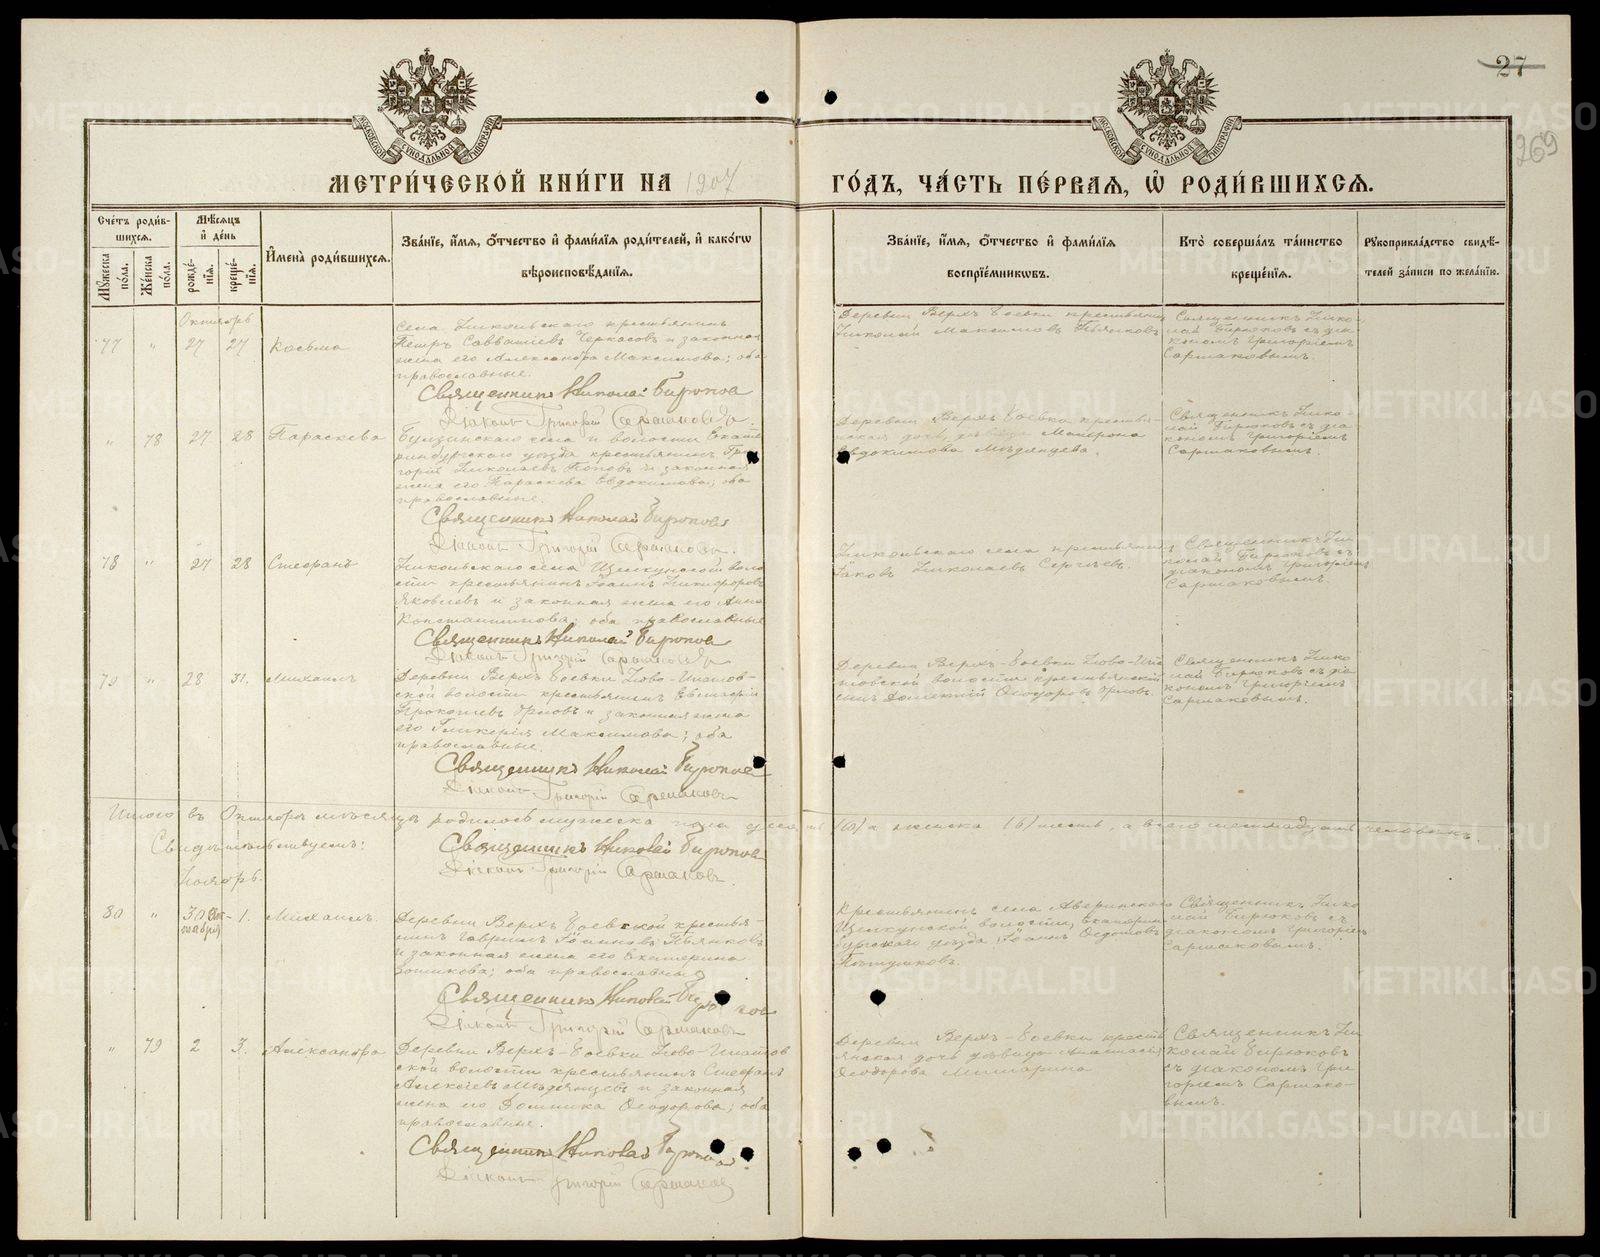 27
269
МОСКОВСКОЙ СУНОДАЛЬНОЙ ТИПОГРАФІИ
МОСКОВСКОЙ СУНОДАЛЬНОЙ ТИПОГРАФІИ
МЕТРИ́ЧЕСКОЙ КНИ́ГИ НА 1907 ГО́ДЪ, ЧА́СТЬ ПЕ́РВАѦ, Ѡ҆ РОДИ́ВШИХСѦ.
Сче́тъ роди́в-
шихсѧ.
Мꙋ́жеска по́ла.
Же́нска по́ла.
Мѣ́сѧцъ
и҆ де́нь
рожде́-
нїѧ.
креще́-
нїѧ.
И҆мена̀ роди́вшихсѧ.
Зва́нїе, и҆́мѧ, ѻ҆́тчество и҆ фами́лїѧ роди́телей, и҆ како́гѡ
вѣроисповѣ́данїѧ.
Зва́нїе, и҆́мѧ, ѻ҆́тчество и҆ фами́лїѧ
воспрїе́мникѡвъ.
Кто̀ соверша́лъ та́инство
креще́нїѧ.
Рꙋкоприкла́дство свидѣ́-
телей за́писи по жела́нїю.
Октябрь
77 " 27 27 Косьма
Села Никольскаго крестьянинъ
Петръ Савватіевъ Черкасовъ и законная
жена его Александра Максимова; оба
православные.
Священникъ Николай Бирюков
Діаконъ Григорій Сармаковъ
Деревни Верхъ-Боевки крестьянинъ
Николай Максимовъ Пьянковъ
Священникъ Нико-
лай Бирюковъ съ діа-
кономъ Григоріемъ
Сармаковымъ.
" 78 27 28 Параскева
Булзинскаго села и волости Екате
ринбургскаго уѣзда крестьянинъ Гри
горій Николаевъ Поповъ и законная
жена его Параскева Евдокимова; оба
православные.
Священникъ Николай Бирюковъ
Діаконъ Григорій Сармаковъ.
Деревни Верхъ-Боевки крестья-
нская дочь, дѣвица Матрона
Евдокимова Мѣдянцева.
Священникъ Нико-
лай Бирюковъ съ діа-
кономъ Григоріемъ
Сармаковымъ.
78 " 27 28 Стефанъ
Никольскаго села Щелкунской воло
сти крестьянинъ Іоаннъ Никифоровъ
Яковлевъ и законная жена его Анна
Константинова; оба православные
Священникъ Николай Бирюков
Діаконъ Григорій Сармаковъ
Никольскаго села крестьянинъ
Іаковъ Николаевъ Сергѣевъ.
Священникъ Ни
колай Бирюковъ съ
діакономъ Григоріемъ
Сармаковымъ.
79 " 28 31. Михаилъ
Деревни Верхъ-Боевки Ново-Ипатов-
ской волости крестьянинъ
Прокопіевъ и законная жена
его Гликерія Максимова; оба
православные.
Священникъ Николай Бирюков
Діаконъ Григорій Сармаковъ
Деревни Верхъ-Боевки Ново-Ипа
товской волости крестьянскій
сынъ Дометій Ѳеодоровъ
Священникъ Нико
лай Бирюковъ съ діа
кономъ Григоріемъ
Сармаковымъ.
Итого въ Октябрѣ мѣсяцѣ родилось мужеска пола а женска (6) шесть, а всего человѣкъ
Свидѣтельствуемъ:
Священникъ Николай Бирюков
Діаконъ Григорій Сармаковъ.
Ноябрь.
80 " 30 Ок-
тября 1. Михаилъ
Деревни Верхъ-Боевской крестья-
нинъ Гавріилъ Іоанновъ Пьянковъ
и законная жена его Екатерина
Фотикова; оба православные
Священникъ Николай Бирюков
Діаконъ Григорій Сармаковъ
Крестьянинъ села Аверинскаго
Щелкунской волости, Екатерин
бургскаго уѣзда, Іоаннъ Ѳедотовъ
Священникъ Нико
лай Бирюковъ съ
діакономъ Григоріемъ
Сармаковымъ.
" 79 2 3. Александра
Деревни Верхъ-Боевки Ново-Ипатов
ской волости крестьянинъ Стефанъ
Алексѣевъ Мѣдянцевъ и законная
жена его Домника Ѳеодорова; оба
православные.
Священникъ Николай Бирюков
Діаконъ Григорій Сармаковъ
Деревни Верхъ-Боевки кресть
янская дочь дѣвица Анастасія
Ѳеодорова Мишарина
Священникъ Ни
колай Бирюковъ
съ діакономъ Гри
горіемъ Сармако-
вымъ.
METRIKI.GASO-URAL.RU